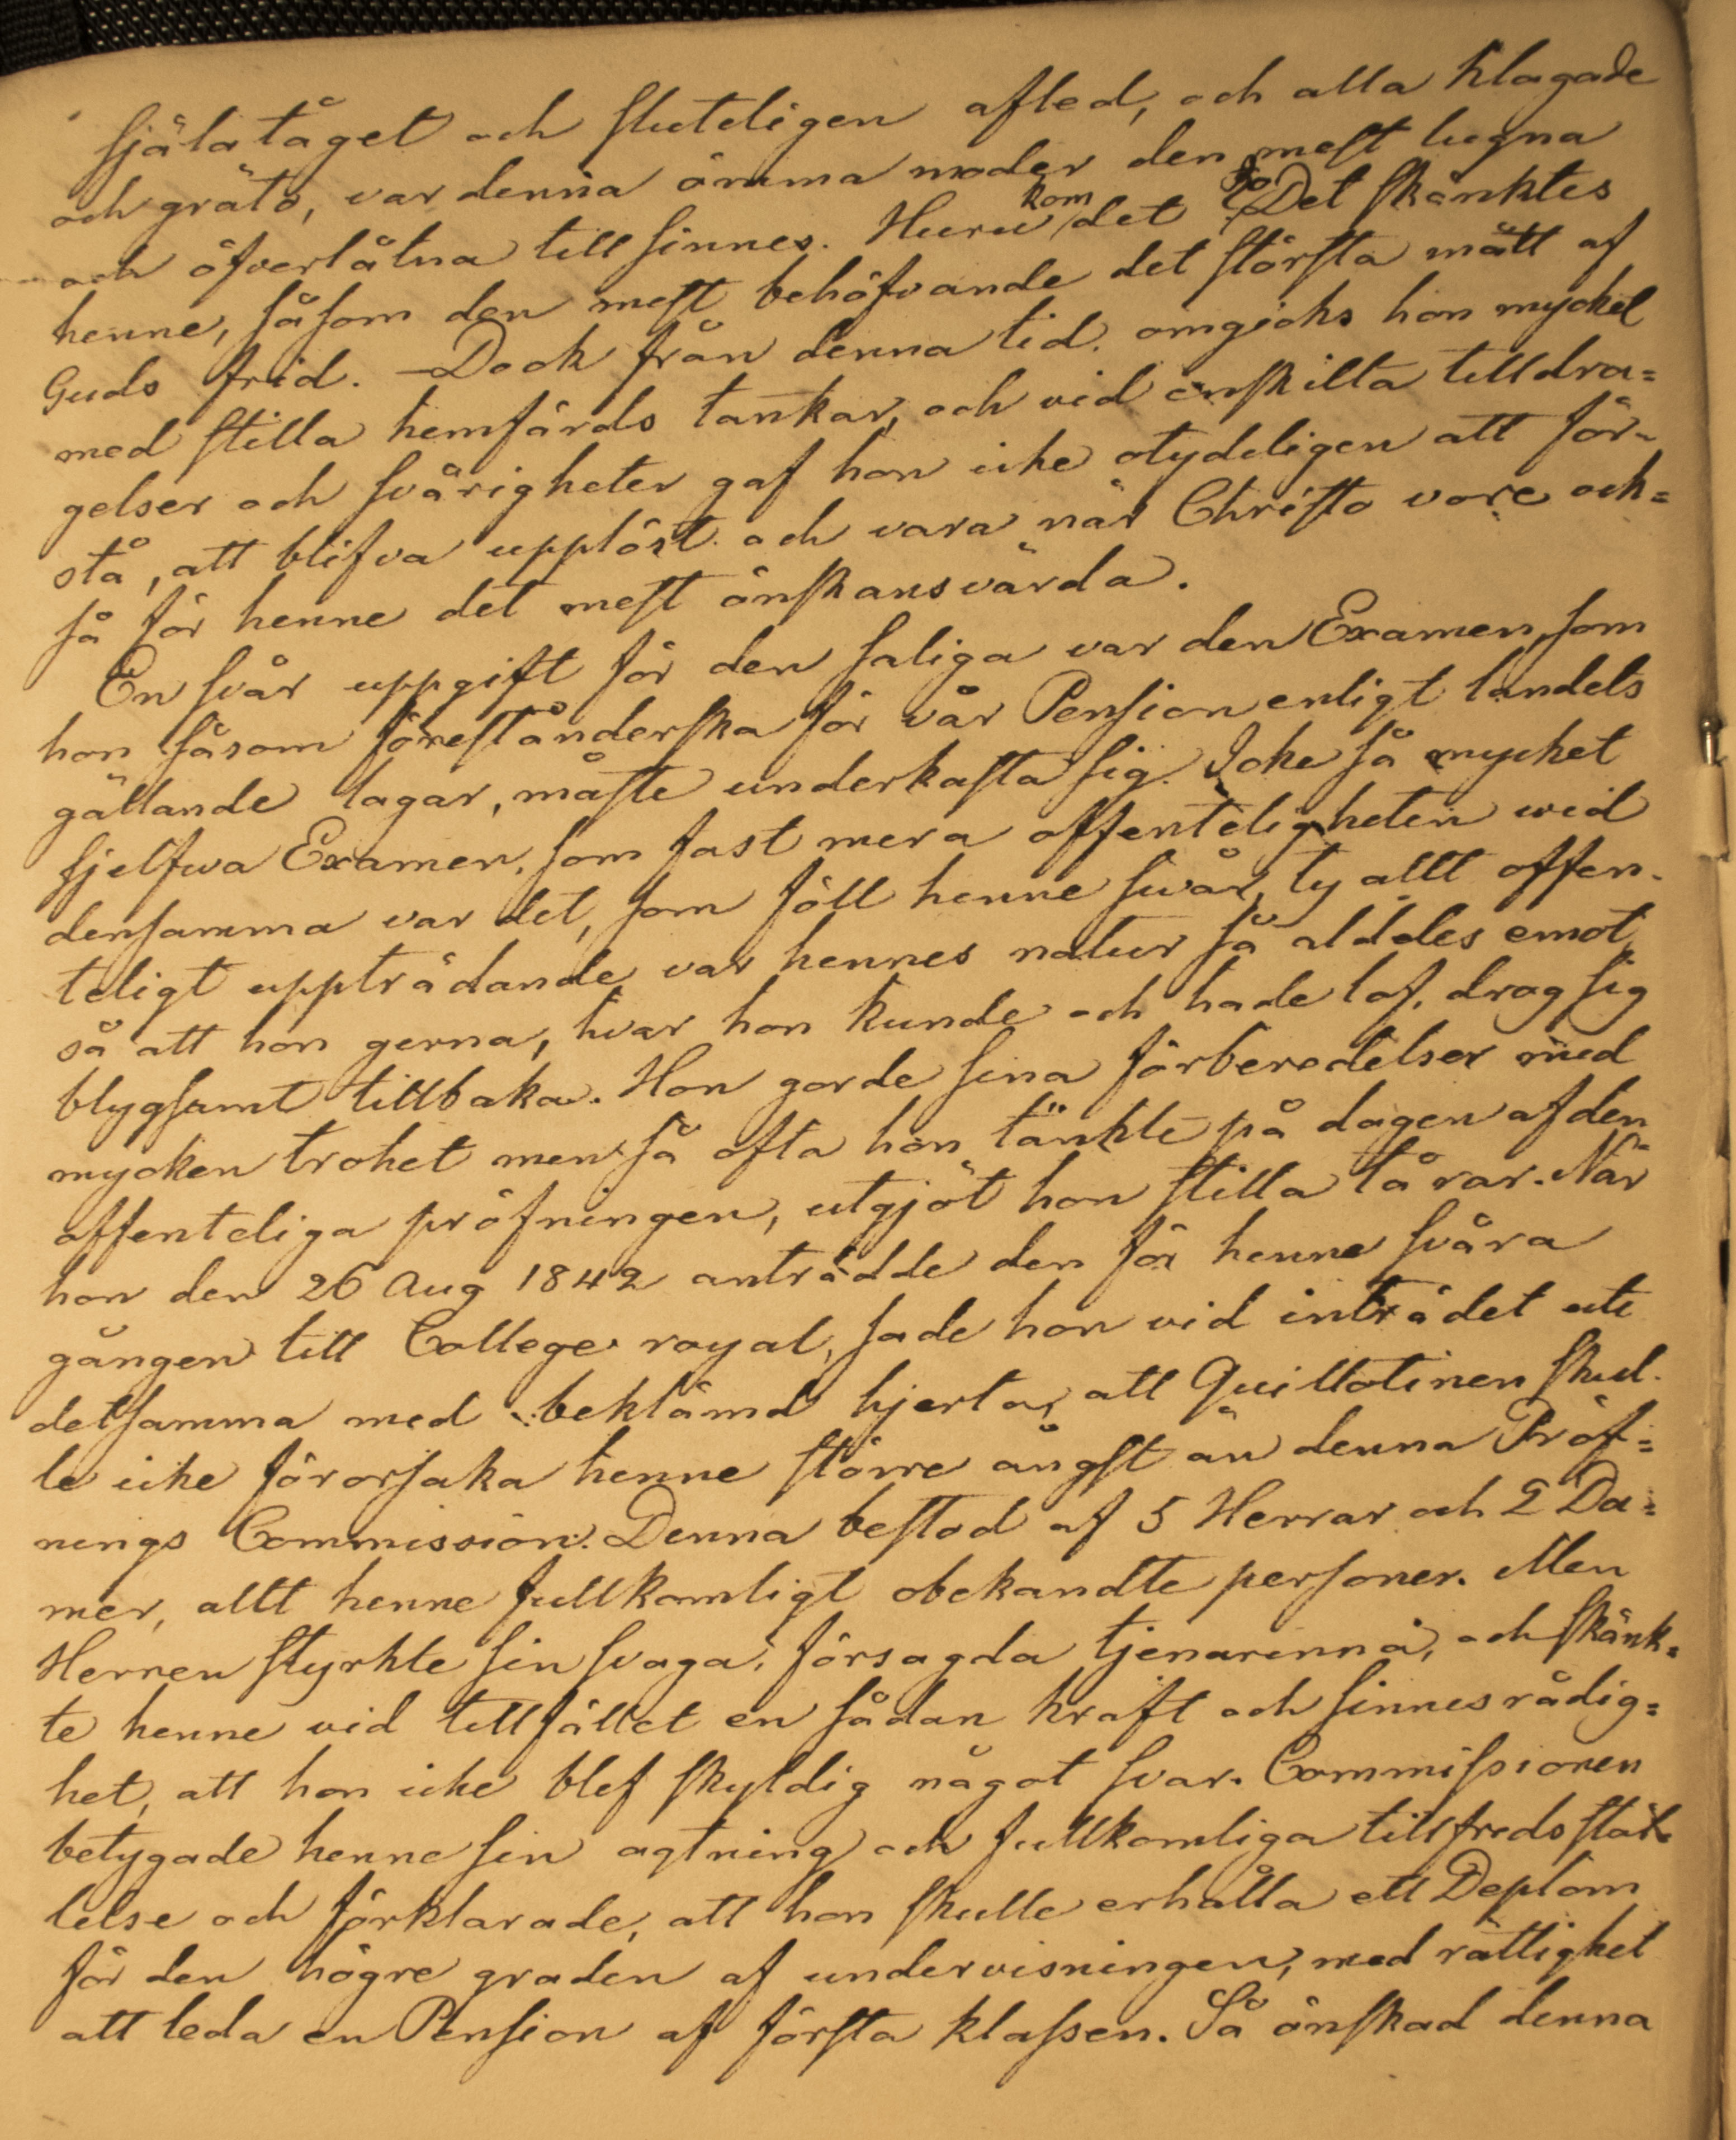 själatåget och sluteligen afled, och alla klagade
och gräto, var denna ömma moder den mest lugna
och öfverlåtna till sinnes. Huru kom det så? Det skänktes
henne, såsom den mest behöfvande det största mått af
Guds frid. – Dock från denna tid. omgicks hon mycket
med stilla hemfärds tankar, och vid enskilta tilldra=
gelser och svårigheter gaf hon icke otydeligen att för-
stå, att blifva upplöst och vara när Christo vore ock=
så för henne det mest önskansvärda.
En svår uppgift för den saliga var den Examen, som
hon såsom förestånderska för vår Pension enligt landets
gällande lagar, måste underkasta sig. Icke så mycket
sjelfva Examen, som fast mera offenteligheten wid
densamma var det, som föll henne swår, ty allt offen-
teligt uppträdande var hennes natur så alldeles emot,
så att hon gerna, hvar hon kunde och hade lof, drog sig
blygsamt tillbaka. Hon gorde sina förberedelser med
mycken trohet men så ofta hon tänkte på dagen af den
offenteliga pröfningen, utgjöt hon stilla tårar. När
hon den 26 Aug 1842 anträdde den för henne svåra
gången till College royal, sade hon vid inträdet uti
detsamma med beklämd hjerta, att Guillotinen skul-
le icke förorsaka henne större ångst än denna Pröf=
nings Commission. Denna bestod af 5 Herrar och 2 Da=
mer, allt henne fullkomligt obekandte personer. Men
Herren styrkte sin svaga, försagda tjenarinna, och skänk=
te henne vid tillfället en sådan kraft och sinnesrådig=
het, att hon icke blef skyldig något svar. Commissionen
betygade henne sin agtning och fullkomliga tillfredsstäl-
lelse och förklarade, att hon skulle erhålla ett Deplom
för den högre graden af undervisningen, med rättighet
att leda en Pension af första klassen. Så önskad denna